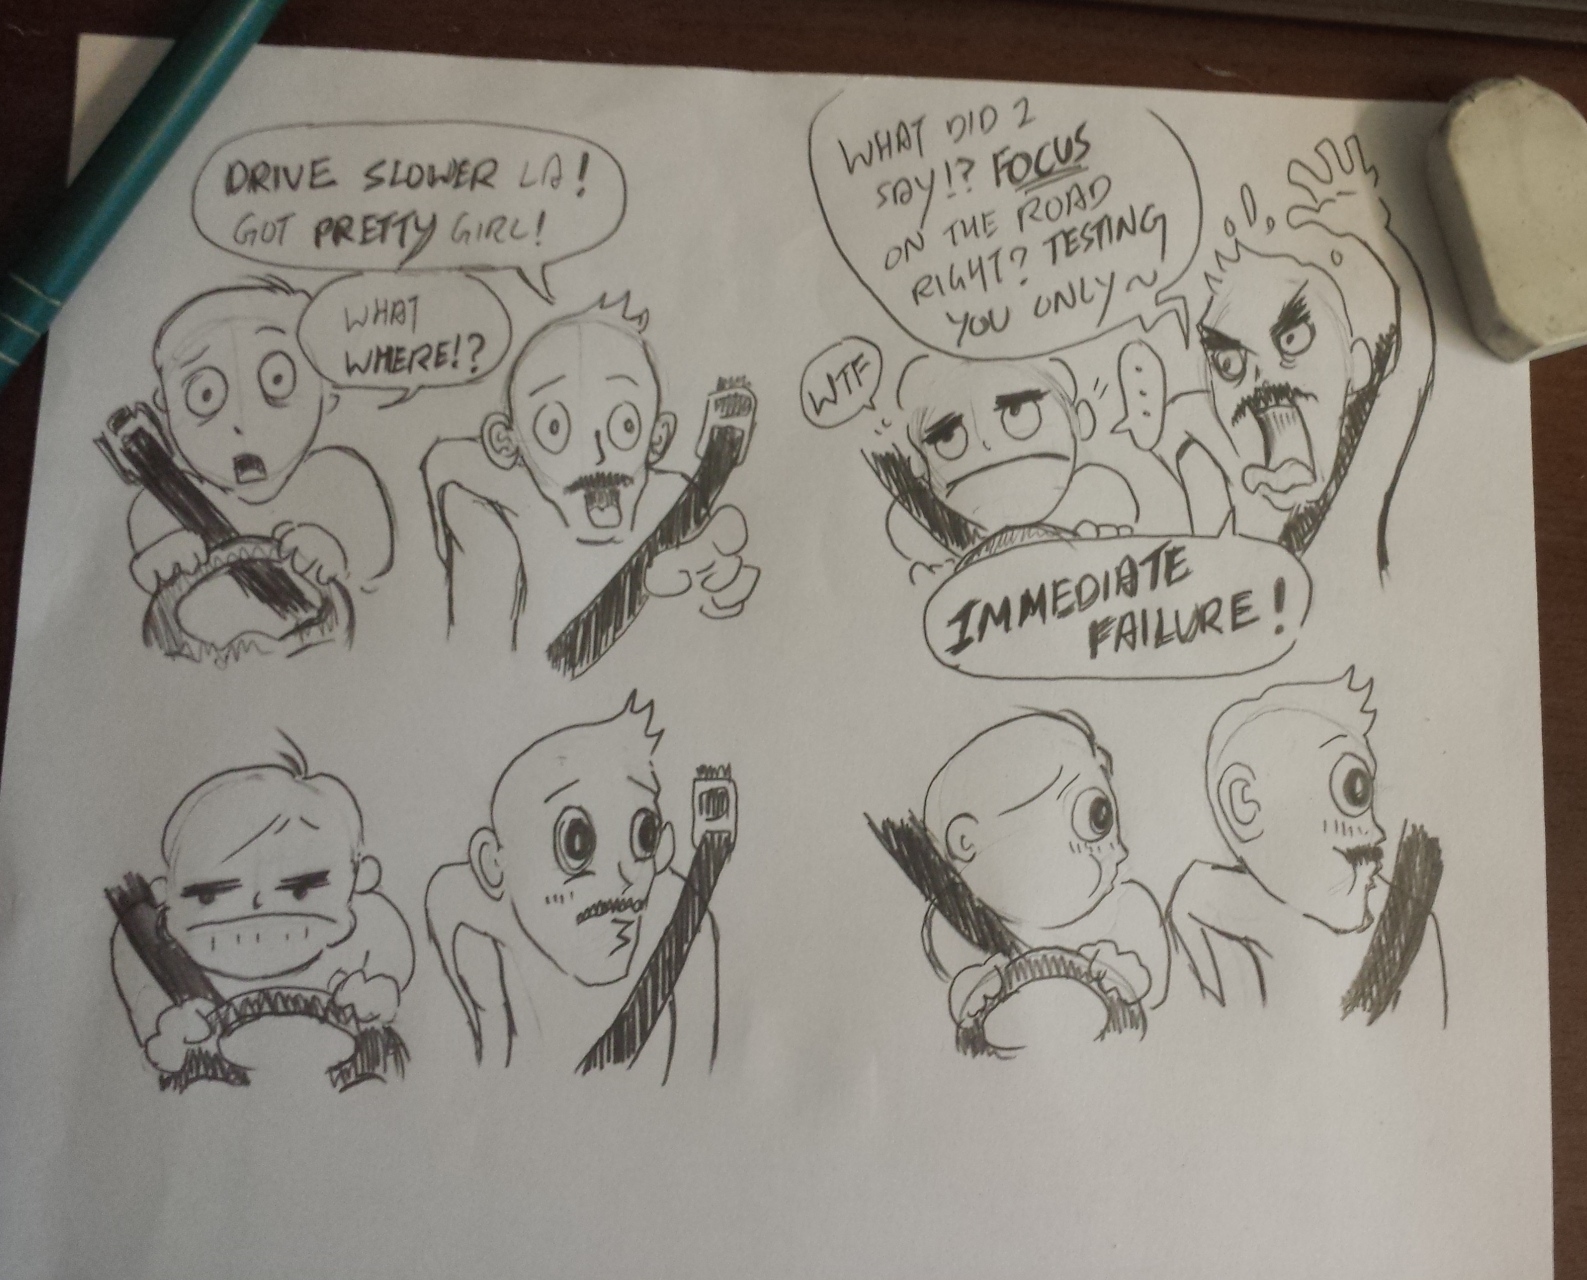 DRIVE SLOWER LA!
GOT PRETTY GIRL!
WHAT
WHERE!?
WHAT DID I
SAY!? FOCUS
ON THE ROAD
RIGHT? TESTING
YOU ONLY~
WTF
...
IMMEDIATE
FAILURE!